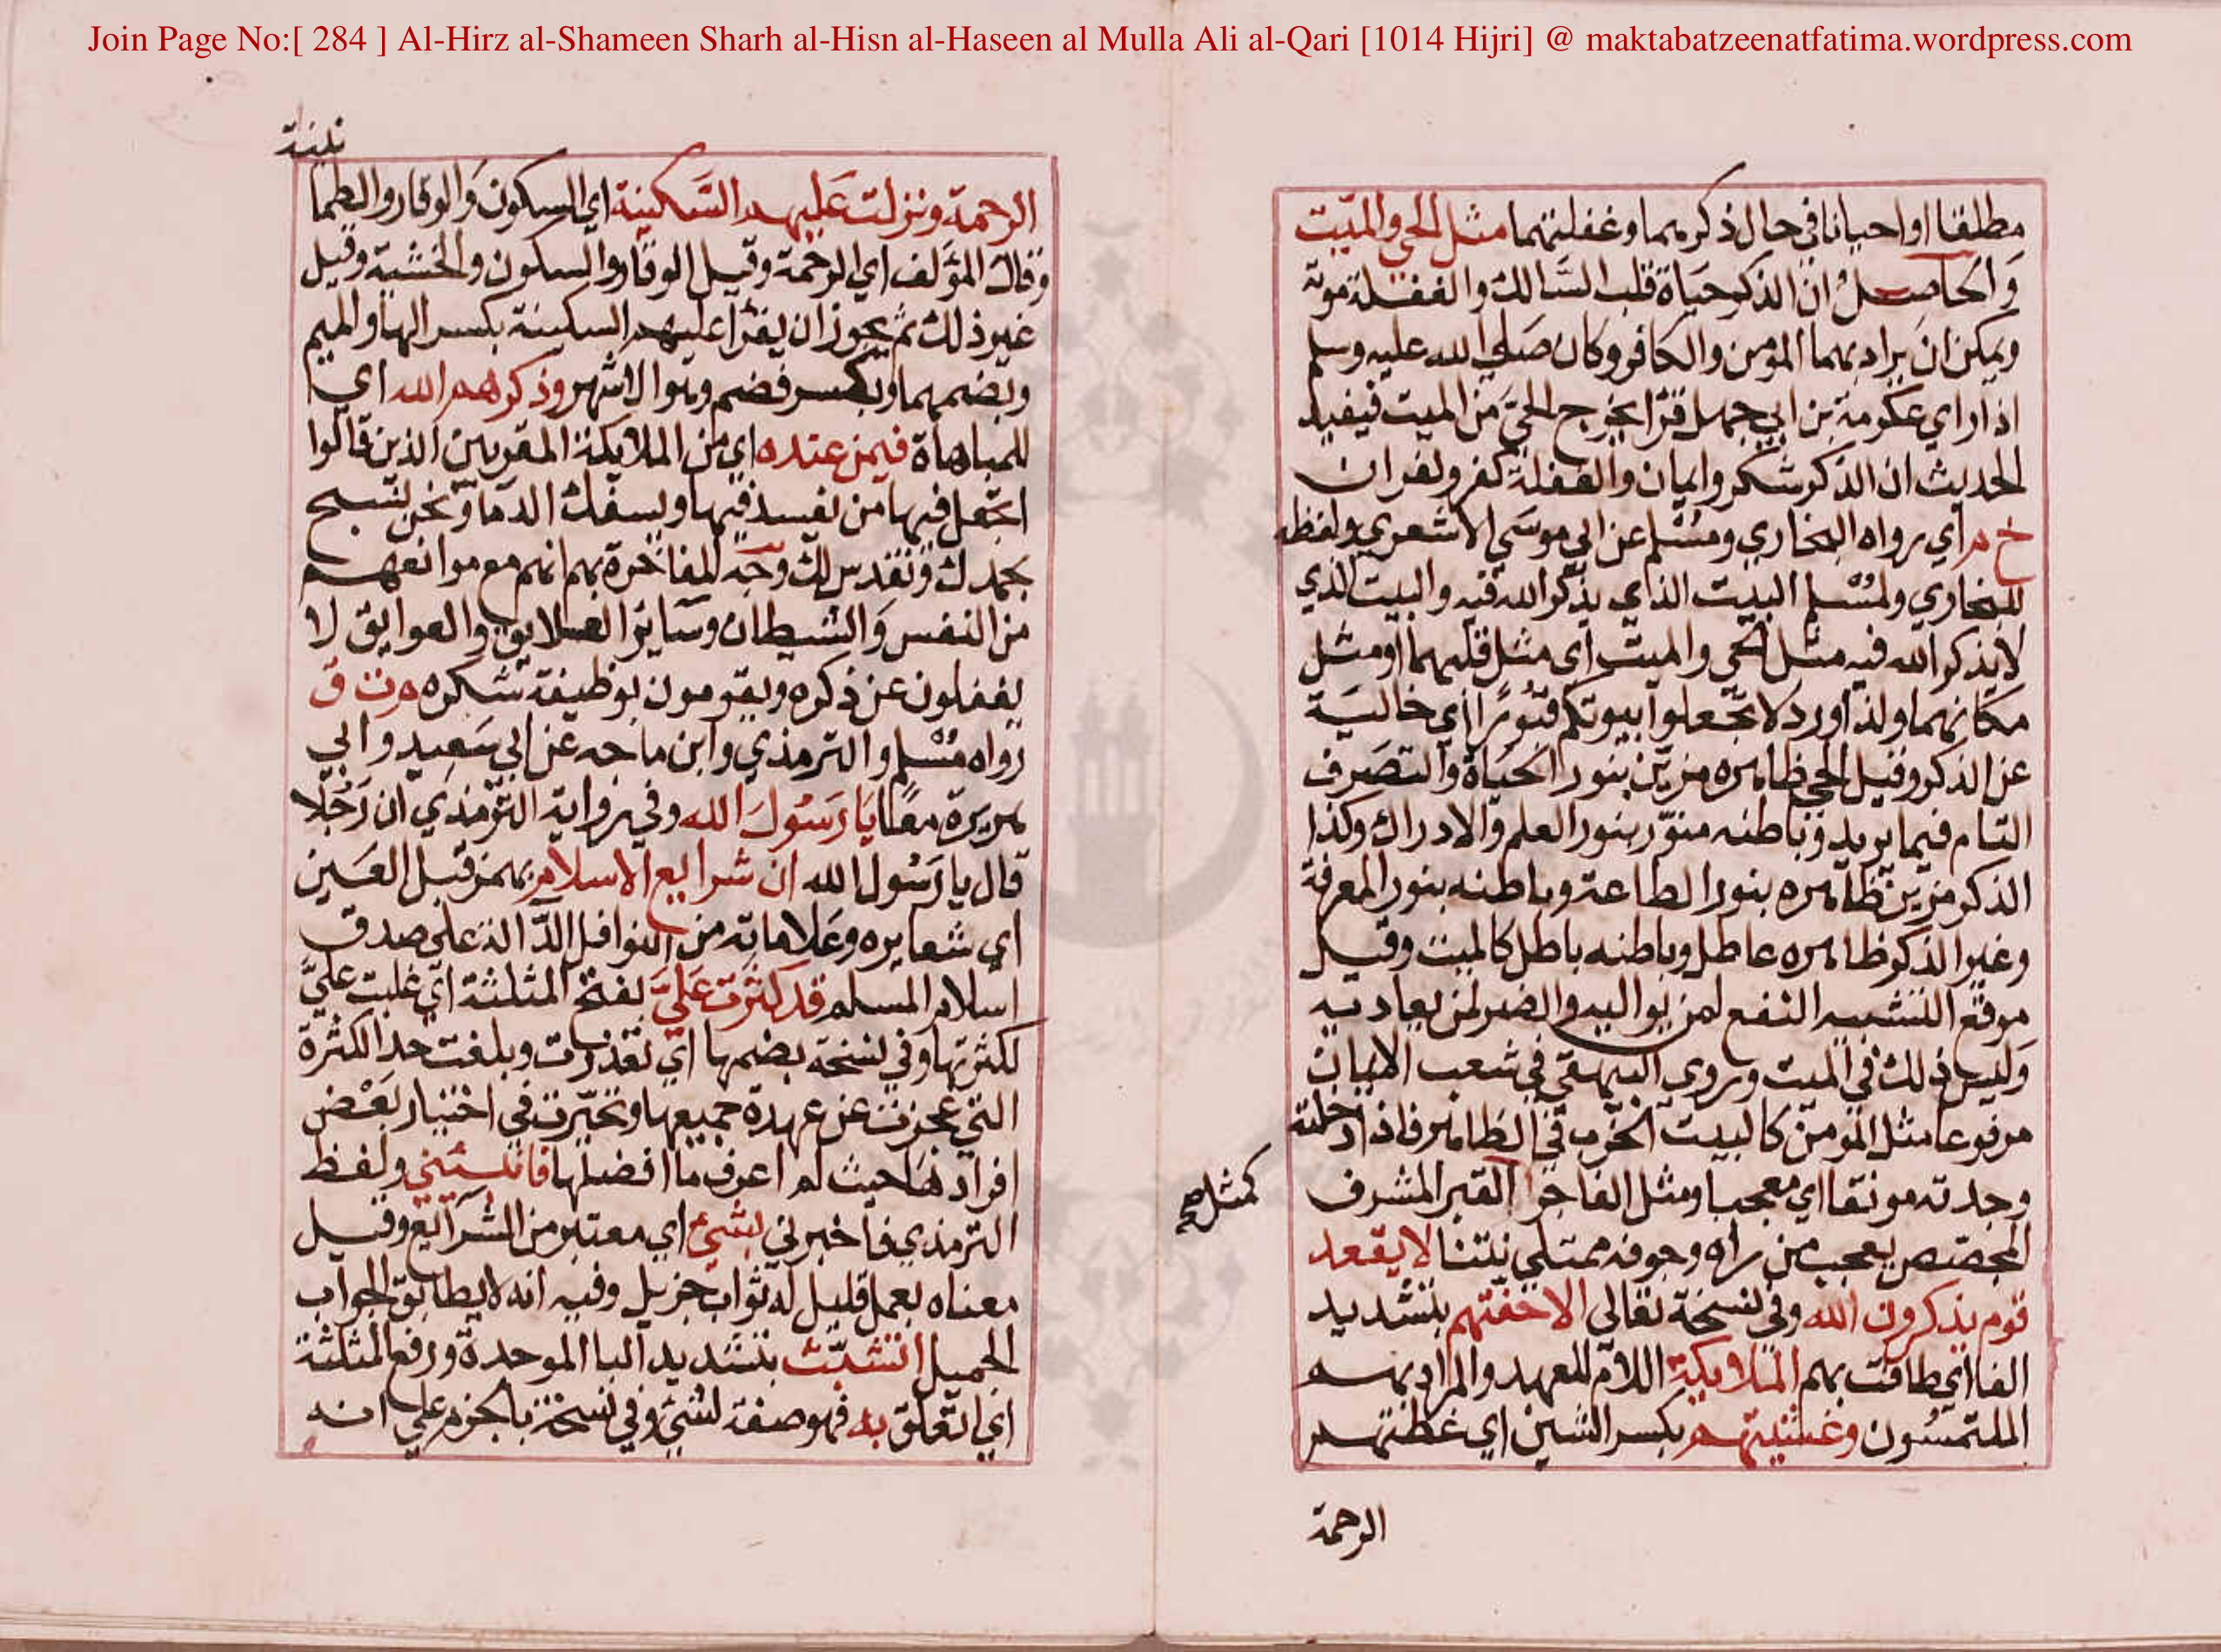 Join Page No:[ 284 ] Al-Hirz al-Shameen Sharh al-Hisn al-Haseen al Mulla Ali al-Qari [1014 Hijri] @ maktabatzeenatfatima.wordpress.com
مطلقا او احيانا في حال ذكرهما وغفلتهما مثل الحي والميت
وَالحاصل ان الذكر حياة قلب السالك والغفلة موته
ويمكن ان يراد بهما المؤمن والكافر وكان صلي الله عليه وسلم
اذا راي عكرمة بن ابي جهل قرا يخرج الحي من الميت فيفيد
الحديث ان الذكر شكر وايمان والغفلة كفر وكفران
خ م اي رواه البخاري ومسلم عن ابي موسي الاشعري ولفظه
للبخاري ولمسلم البيت الذي يذكر الله فيه والبيت الذي
لا يذكر الله فيه مثل الحي والميت اي مثل قلبهما او مثل
مكانهما ولذا ورد لا تجعلوا بيوتكم قبورًا اي خالية
عن الذكر وقيل الحي ظاهره مزين بنور الحياة والتصرف
التام فيما يريد وباطنه منوّر بنور العلم والادراك وكذا
الذكر مزين ظاهره بنور الطاعة وباطنه بنور المعرفة
وغير الذكر ظاهره عاطل وباطنه باطل كالميت وقيل
موقع التشبيه النفع لمن يواليه والضر لمن يعاديه
وَليس ذلك في الميت وروي البيهقي في شعب الايمان
مرفوعا مثل المؤمن كالبيت الخرب في الظاهر فاذا دخلته
وجدته مونقا اي معجبا ومثل الفاجر القبر المشرف
كمثل صح
المجصص يعجب من راه وجوفه ممتلي نتنا لا يقعد
قوم يذكرون الله وفي نسخة تعالى الا حفتهم بتشديد
الفا اي طافت بهم الملايكة اللام للعهد والمراد بهم
الملتمسون وغشيتهم بكسر الشين اي غطتهم
الرحمة
الرحمة ونزلت عَليهم السَّكينة اي السكون وَالوقار والطما
نينة
وقال المؤلف اي الرحمة وقيل الوقار والسكون والخشية وقيل
غير ذلك ثم يجوز ان يقرا عليهم السكينة بكسر الها والميم
وبضمهما وبكسر فضم وهو الاشهر وذكرهم الله اي
للمباهاة فيمن عنده اي من الملايكة المقربين الذين قالوا
اتجعل فيها من يفسد فيها ويسفك الدما ونحن نسبح
بحمدك ونقدس لك وجه المفاخرة بهم انهم مع موانعهم
من النفس وَالشيطان وساير العلايق والعوايق لا
يغفلون عن ذكره ويقومون بوظيفة شكره م ت ق
رواه مسلم والترمذي وابن ماجه عن ابي سَعيد وابي
هريرة معًا يَا رَسُولَ الله وفي رواية الترمذي ان رَجُلا
قال يا رَسُول الله ان شرايع الاسلام بهمز قبل العين
اي شعايره وعَلاماته من النوافل الدّالة على صدق
اسلام المسلم قد كثرت عَليَّ بفتح المثلثة اي غلبت عليَّ
لكثرتها وفي نسخة بضمها اي تعذرت وبلغت حد الكثرة
التي عجزت عن عهدة جميعها وتحيّرت في اختيار بَعْض
افرادهَا حيث لم اعرف ما افضلها فانبئيني ولفظ
الترمذي فاخبرني بشئ اي معتبر من الشرايع وقيل
معناه بعمل قليل له ثواب جزيل وفيه انه لا يطابق الجواب
الجميل اتشبّث بتشديد البا الموحدة ورفع المثلثة
اي اتعلق به فهو صفة لشئ وفي نسخة بالجزم علي انه